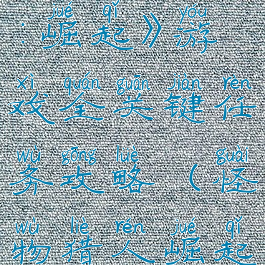 jué qǐ yóu
崛起》游
xì quán guān jiàn rèn
戏全关键任
wù gōng lüè guài
务攻略（怪
wù liè rén jué qǐ
物猎人崛起